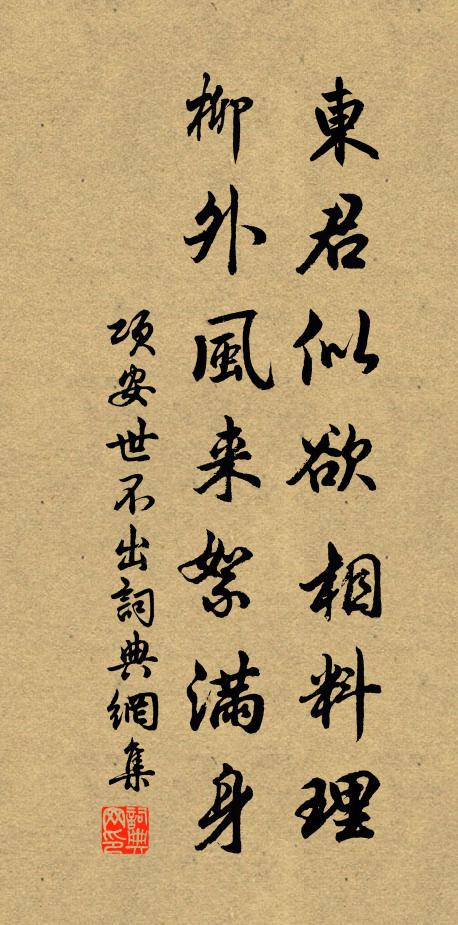 東君似欲相料理
柳外風来絮満身
项安世不出詞典網集
詞典
网印